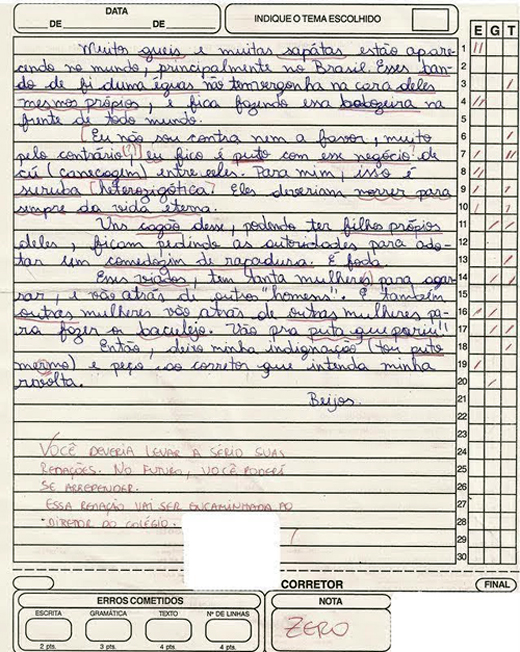 DATA
DE DE
INDIQUE O TEMA ESCOLHIDO
E G T
Muitos gueis e muitas sapátas estão apare- 1
cendo no mundo, principalmente no Brasil. Esses ban- 2
do de fi duma éguas não tem vergonha na cara deles 3
mesmos própios, e fica fazendo essa bobogeira na 4
frente de todo mundo. 5
[Eu não sou contra nem a favor, muito 6
pelo contrário(?)] eu fico é puto com esse negócio? de 7
cú (canecagem) entre eles. Para mim, isso é 8
suruba [heterozigótica? Eles deveriam morrer para 9
sempre da vida eterna. 10
Uns cagão desse, podendo ter filhos própios 11
deles, ficam pedindo as autoridades para ado- 12
tar um comedogim de rapadura. É foda 13
Esses viados, tem tanta mulheres) para agar 14
rar, e vão atrás de outros "homens". E também 15
outras mulheres vão atrás de outras mulheres pa- 16
ra fazer o baculejo. Vão pra puta que pariu!! 17
Então, deixo minha indignação (tou puto 18
mermo) e peço ao corretor que intenda minha 19
revolta. 20
Beijos. 21
22
23
VOCÊ DEVERIA LEVAR A SÉRIO SUAS 24
REDAÇÕES. NO FUTURO, VOCÊ PODERÁ 25
SE ARREPENDER. 26
ESSA REDAÇÃO VAI SER ENCAMINHADA AO 27
DIRETOR DO COLÉGIO. 28
29
30
CORRETOR
FINAL
ERROS COMETIDOS
ESCRITA GRAMÁTICA TEXTO Nº DE LINHAS
2 pts. 3 pts. 4 pts. 4 pts.
NOTA
ZERO